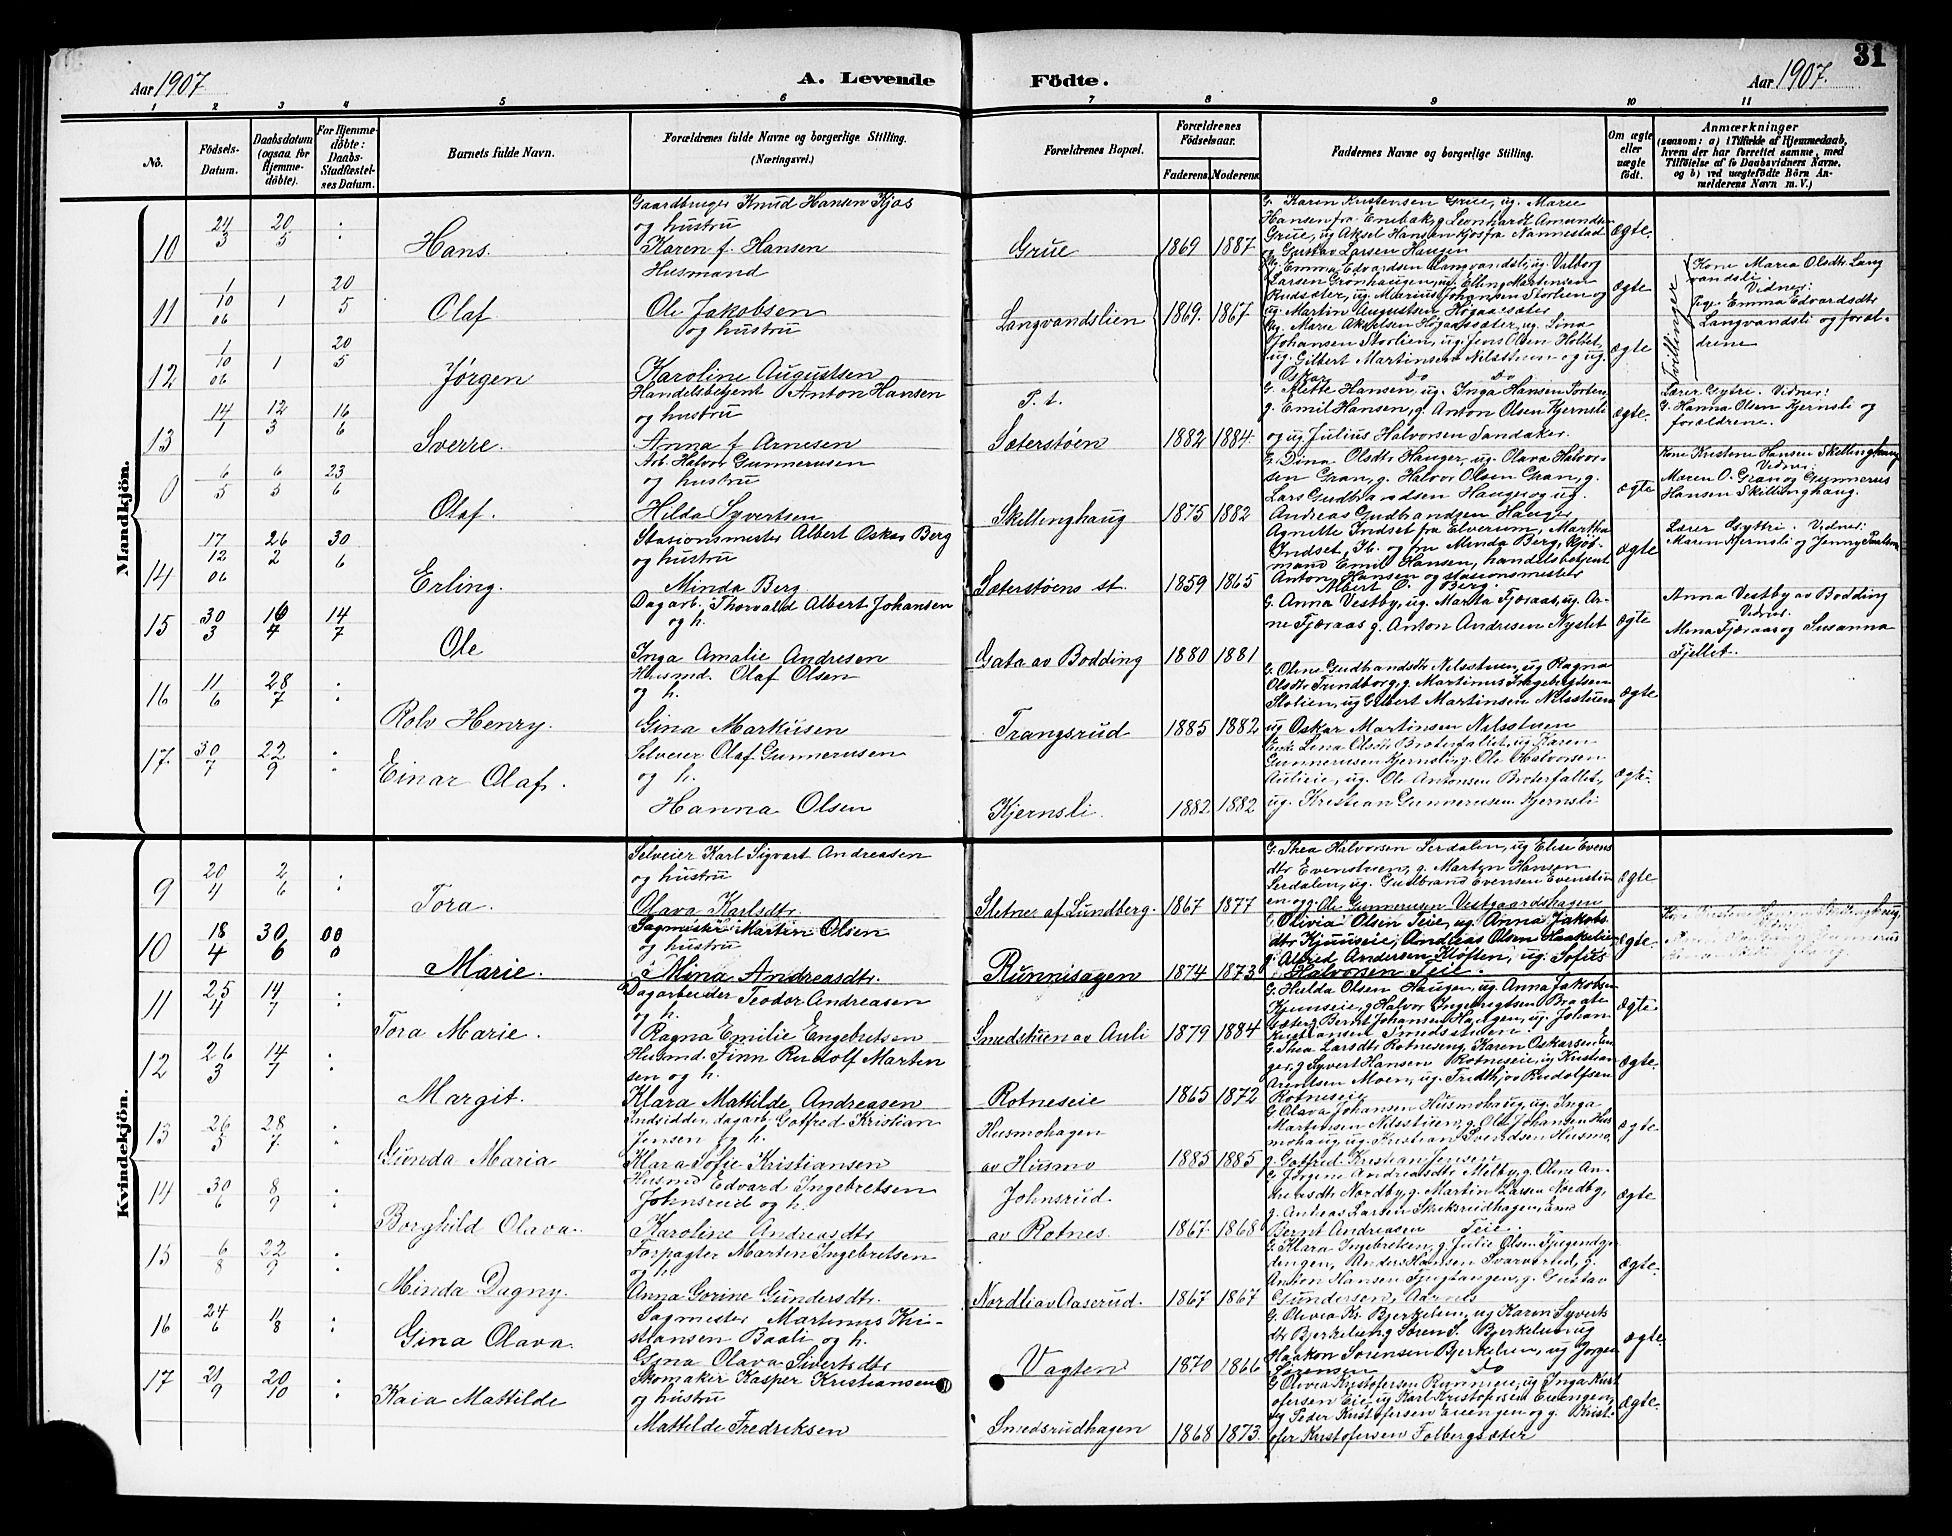 31
Aar 1907. A. Levende Födte. Aar 1907.
1 2 3 4 5 6 7 8 9 10 11
No. Födsels-Datum. Daabsdatum (ogsaa for Hjemmedöbte). For Hjemmedöbte: Daabs-Stadfæstelses Datum. Barnets fulde Navn. Forældrenes fulde Navne og borgerlige Stilling. (Næringsvei.) Forældrenes Bopæl. Forældrenes Födselsaar. Faderens. Moderens. Faddernes Navne og borgerlige Stilling. Om ægte eller uægte født. Anmærkninger (saasom: a) i Tilfælde af Hjemmedaab, hvem der har forrettet samme, med Tilföielse af to Daabsvidners Navne, og b) ved uægtefödte Börn Anmelderens Navn m. V.)
Mandkjön.
10 24/3 20/5 : Hans. Gaardbruger Knud Hansen Kjos
og hustru
Karen f. Hansen Grue 1869 1887
G. Karen Kristensen Grue, ug. Marie
Hansen fra Enebak, g. Leonhardt Amundsen
Grue, ug Aksel Hansen Kjos fra Nannestad
ug. Gustav Larsen Haugen ægte.
11 1/10 06 1 20/5 Olaf Husmand
Ole Jakobsen
og hustru Langvandslien 1869. 1867
ug. Emma Edvardsen Langvandsli, ug. Valborg
Larsen Grønhaugen, ug. Elling Martensen
Rudsæter, ug. Marius Johansen Storlien og
ug. Martin Augustsen Högaasæter ægte
Tvillinger
Kone Maria Olsdtr. Lang
vandsli.
Vidner:
Pige Emma Edvardsdtr
Langvandsli og foræl-
drene
12 1/10 06 1 20/5 Jørgen Karoline Augustsen
ug. Marie Akselsen Högaasæter, ug. Lina
Johansen Storlien, ug. Jens Olsen Holtet,
ug. Gilbert Martinsen Nilsstuen og ug.
Oskar Do Do ægte
13 14/1 12/3 16/6 Sverre. Handelsbetjent Anton Hansen
og hustru
Anna f. Arnesen P. t.
Sæterstøen 1882 1884.
G. Alette Hansen, ug. Inga Hansen
g. Emil Hansen, g. Anton Olsen Kjernsli
og ug. Julius Halvorsen Sandaker. ægte.
Lærer Gytri. Vidner:
G. Hanna Olsen Kjernsli og
forældrene.
0 6/5 6/5 23/6 Olaf. Arb. Halvor Gunnerusen
og hustru
Hilda Syvertsen Skillinghaug 1875 1882
G. Dina Olsdtr Hauger, ug. Olava Halvor-
sen Gran, g. Halvor Olsen Gran, g.
Lars Gudbrandsen Hauger og ug.
Andreas Gudbrandsen Hauger ægte
Kone Kristene Hansen Skillinghaug
Vidner:
Maren O. Gran og Gunnerus
Hansen Skillinghaug.
14 17/12 06 26/2 30/6 Erling. Stasionsmester Albert Oskar Berg
og hustru
Minda Berg Sæterstøens st. 1859 1865
Agnette Indset fra Elverum, Martha
Indset, H. og fru Minda Berg, kjøb-
mand Emil Hansen, handelsbetjent
Anton Hansen og stasionsmester
Albert O. Berg. ægte
Lærer Gyttri. Vidner:
Maren Kjernsli og Jenny
15 30/3 16/4 14/7 Ole Dagarb. Thorvald Albert Johansen
og h.
Inga Amalie Andresen Gata av Bodding 1880 1881
G. Anna Vestby, ug. Marta Fjøraas, ug. Ar-
ne Fjæraas g. Anton Andresen Nystet ægte
Anna Vestby av Bodding
Vidner
Mina Fjæraas og Susanna
Fjellet.
16 11/6 28/7 : Rolv Henry. Husmd. Olaf Olsen
og h.
Gina Markusen Trangsrud 1885 1882
G. Oline Gudbrandsdtr Nilsstuen, ug Ragna
Olsdtr Trindborg, g. Martinus Ingebrigtsen
Stolien, ug Gilbert Martinsen Nilsstuen
ug Oskar Martinsen Nilsstuen ægte
17. 30/7 22/9 : Einar Olaf. Selveier Olaf Gunnerusen
og h.
Hanna Olsen Kjernsli. 1882. 1882
Lina Olsdtr Braterfallet, ug Karen
Gunnerusen Kjernsli g. Ole Halvorsen
Aulieie, ug. Ole Antonsen Braterfallet,
ug. Kristian Gunnerusen Kjernsli ægte.
Kvindekjön.
9 20/4 2/6 : Tora. Selveier Karl Sigvart Andreasen
og hustru
Olava Karlsdtr. Sletner af Lundberg. 1867 1877
G. Thea Halvorsen Serdalen, ug Elise Evens
dtr Evenstuen, g. Martin Hansen
Serdalen, ug. Gudbrand Evensen Evenstu
en og g. Ole Gunnerusen Vestgaardshagen ægte
10 18/4 30/6 00/0 Marie. Sagmester Martin Olsen
og hustru
Mina Andreasdtr. Runnisagen 1874 1873
G. Olivia Olsen Teie, ug. Anna Jakobs
dtr Kjuuseie, Andreas Olsen Haakelien
g. Alfred Andersen Kløften, ug. Sofus
Halvorsen Teie. ægte.
11 25/4 14/7 : Tora Marie. Dagarbeider Teodor Andreasen
og h.
Ragna Emilie Engebretsen Smedstuen av Auli 1879 1884
G. Hulda Olsen Haugen, ug. Anna Jakobsen
Kjuuseie, g Halvor Ingebrigtsen Braate
sæter, g Bernt Johansen Haugen, ug. Johan
Kristiansen Smedsstuen. ægte
12 26/3 14/7 : Margit. Husmd. Finn Rudolf Martin
sen og h.
Klara Matilde Andreasen Rotneseie 1865 1872
G. Thea Larsdtr Rotneseng Karen Oskarsen En
ger, g Syvert Hansen Rotneseie, ug Kristian
Arentsen Moen, ug. Fridthjov Rudolfsen
Rotneseie ægte.
13 26/5 28/7 : Gunda Maria Indridder, dagarb. Gotfred Kristian
Jensen og h.
Klara Sofie Kristiansen Husmohagen
av Husmo 1885 1885
G. Olava Johansen Husmohaug, ug. Inga
Martensen Nilsstuen, g. Ole Johansen Hus
mohaug, ug. Kristian Svendsen Husmo,
g. Gotfred Kristian Jensen ægte.
14 30/6 8/9 : Borghild Olava. Husmd Edvard Ingebretsen
Johnsrud og h.
Karoline Andreasdtr Johnsrud.
av Rotnes. 1867. 1868
G. Jørgine Andreasdtr Melby, g. Oline An-
dersdtr Nordby, g. Martin Larsen Nordby,
g. Andreas Larsen Skriksrudhagen,
Bernt Andreasen Teie. ægte
15 6/8 22/9 : Minda Dagny. Forpagter Marten Ingebretsen
og h.
Anna Gorine Gundersdtr. Nordli av Aaserud. 1867 1867
G. Klara Ingebretsen, g. Julie Olsen
Anders Hansen Svarverud, g.
Anton Hansen Fjugtangen, g. Gustav
Gundersen, Aarnes ægte.
16 24/6 11/8 : Gina Olava. Sagmester Martinus Kri-
stiansen Baali og h.
Gina Olava Sivertsdtr Vagten 1870 1866
G. Olivia Kr. Bjerkelien, ug Karen Syverts
dtr Bjerkelieng Søren S. Bjerkelien ug
Haakon Sorensen Bjerkelien, ug Jørgen
Sorensen Do ægte
17 21/9 20/10 : Kaia Mattilde Skomaker Kasper Kristiansen
og hustru
Mattilde Fredriksen Smedsrudhagen 1868 1873.
G Olivia Kristofersen Runnieie, ug Inga Krist
ofersen Eie, ug Karl Kristofersen Eiengen,
ug Peder Kristofersen Eiengen og g. Krist-
ofer Kristofersen Folbergsæter ægte.